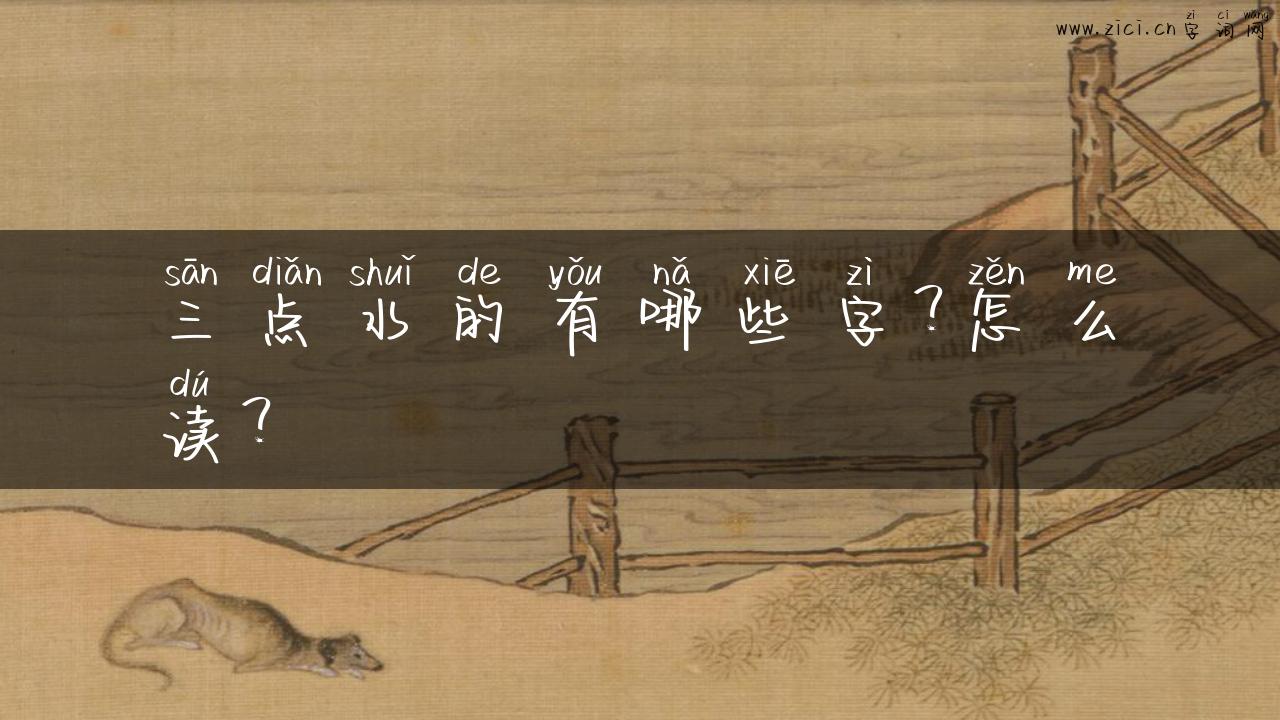 zì cí wang
www.zici.cn 字词网
sān diǎn shuǐ de yǒu nǎ xiē zì zěn me
三点水的有哪些字?怎么
dú
读?